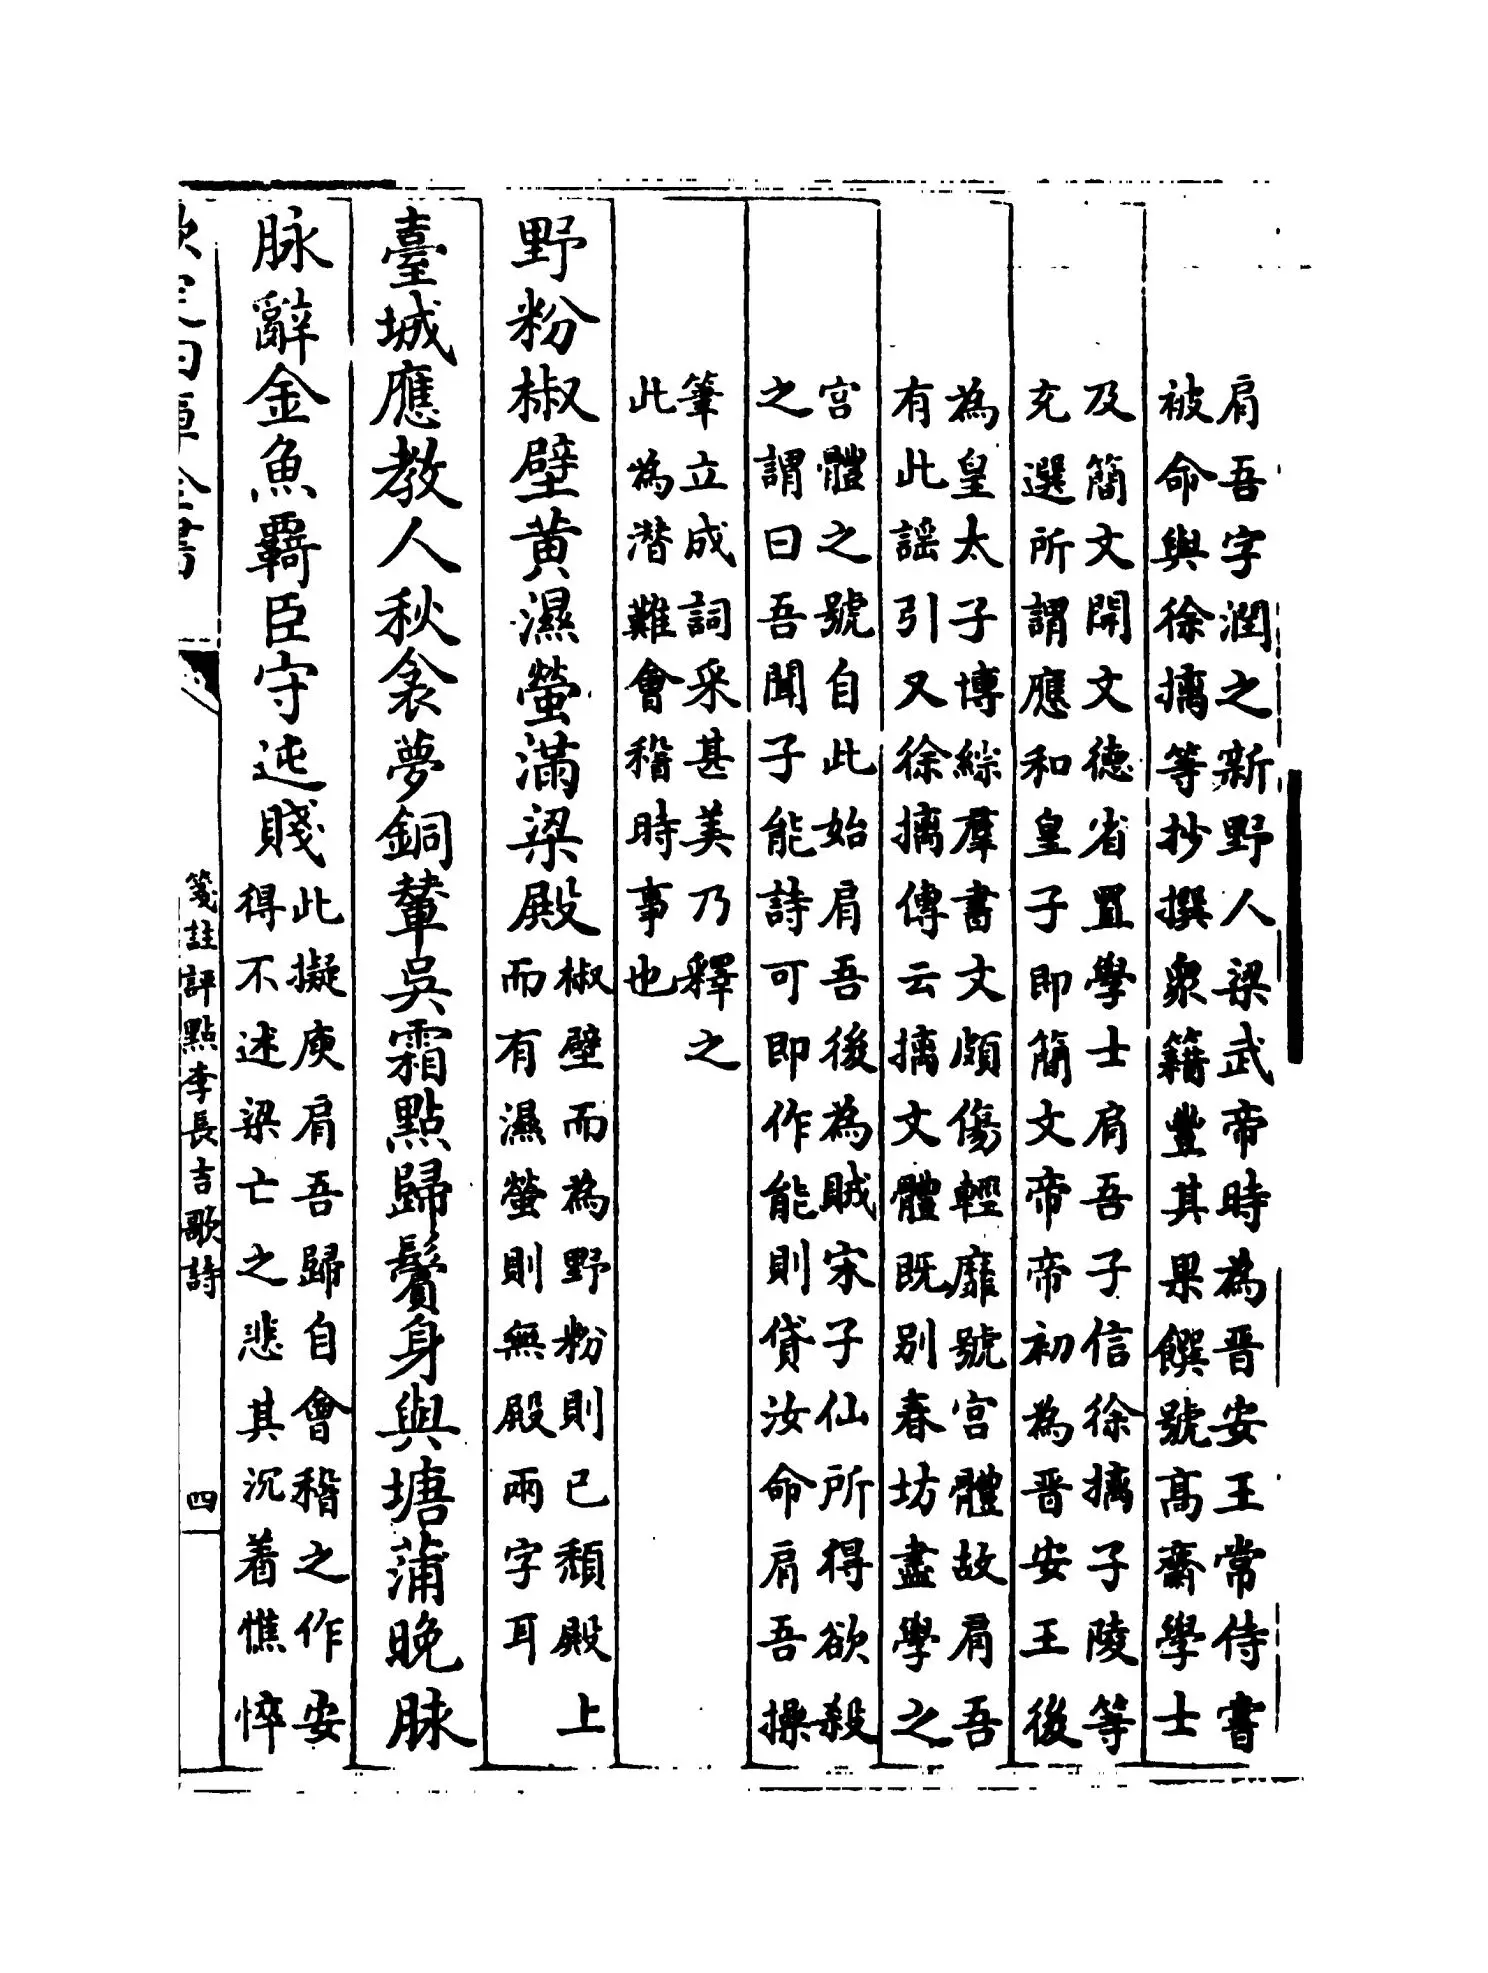 肩吾字潤之新野人梁武帝時為晋安王常侍書
被命與徐摛等抄撰衆籍豐其果饌號高齋學士
及簡文開文德省置學士肩吾子信徐摛子陵等
充選所謂應和皇子即簡文帝帝初為晋安王後
為皇太子博綜羣書文頗傷輕靡號宫體故肩吾
有此謡引又徐摛傳云摛文體既别春坊盡學之
宫體之號自此始肩吾後為賊宋子仙所得欲殺
之謂曰吾聞子能詩可即作能則貸汝命肩吾操
筆立成詞采甚美乃釋之
此為潛難會稽時事也
野粉椒壁黄濕螢滿梁殿
椒壁而為野粉則已頽殿上
而有濕螢則無殿兩字耳
臺城應教人秋衾夢銅輦吳霜點歸鬢身與塘蒲晚脉
脉辭金魚覊臣守迍賤
此擬庾肩吾歸自會稽之作安
得不述梁亡之悲其沉着憔悴
欽定四庫全書
箋註評點李長吉歌詩
四